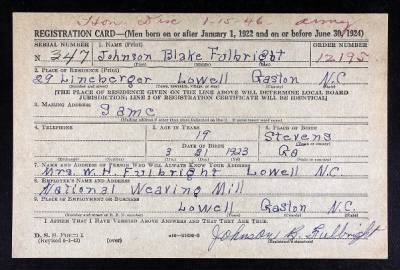 Hon. Disc 1-15-46 army
REGISTRATION CARD—(Men born on or after January 1, 1922 and on or before June 30, 1924)
SERIAL NUMBER 1. NAME (Print) ORDER NUMBER
N 347 Johnson Blake Fulbright 12195
2. PLACE OF RESIDENCE (Print)
29 Lineberger Lowell Gaston N.C.
[THE PLACE OF RESIDENCE GIVEN ON THE LINE ABOVE WILL DETERMINE LOCAL BOARD
JURISDICTION; LINE 2 OF REGISTRATION CERTIFICATE WILL BE IDENTICAL]
3. MAILING ADDRESS
Same
4. TELEPHONE 5. AGE IN YEARS 6. PLACE OF BIRTH
19 Stevens
DATE OF BIRTH
3 21 1923 Ga
7. NAME AND ADDRESS OF PERSON WHO WILL ALWAYS KNOW YOUR ADDRESS
Mrs. W. H. Fulbright Lowell N.C.
8. EMPLOYER'S NAME AND ADDRESS
National Weaving Mill
9. PLACE OF EMPLOYMENT OR BUSINESS
Lowell Gaston N.C.
I AFFIRM THAT I HAVE VERIFIED ABOVE ANSWERS AND THAT THEY ARE TRUE.
D. S. S. Form 1
(Revised 6-1-42) (over) Johnson B. Fulbright